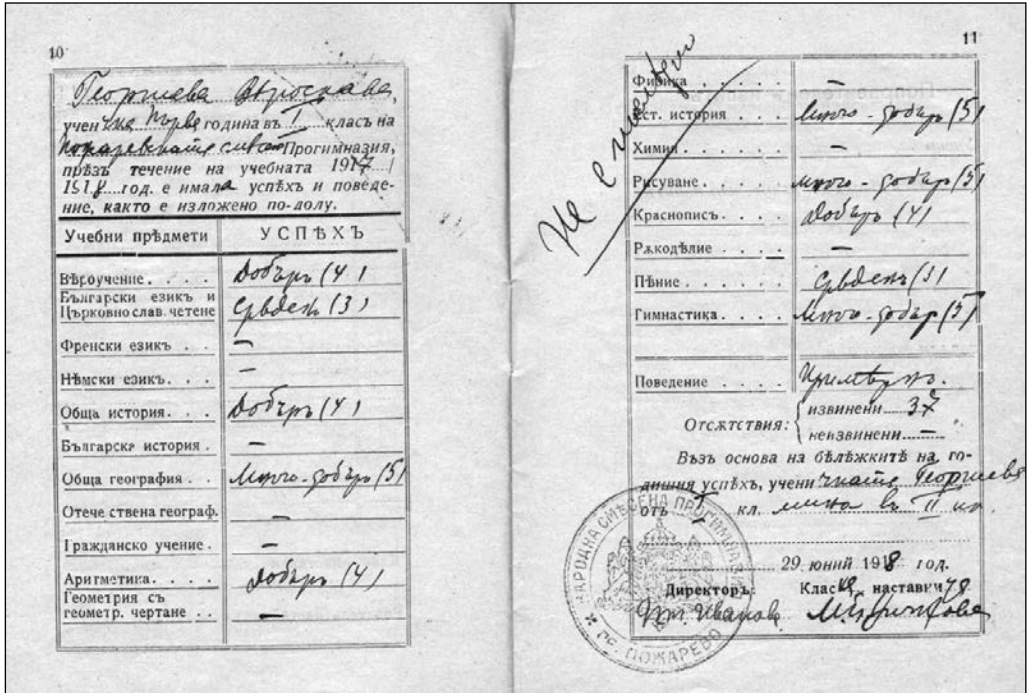 10
Георгиева
ученичка първа година въ I класъ на
Прогимназия,
прѣзъ течение на учебната 1917/
1918 год. е имала успѣхъ и поведе-
ние, както е изложено по-долу.
Учебни прѣдмети УСПѢХЪ
Вѣроучение. . . . . Добъръ (4)
Български езикъ и
Църковнослав. четене Срѣденъ (3)
Френски езикъ . . —
Нѣмски езикъ. . . —
Обща история. . . Добъръ (4)
Българска история . —
Обща география . . Много-добъръ (5)
Отечествена географ. —
Гражданско учение . —
Аритметика. . . . Добъръ (4)
Геометрия съ
геометр. чертане . . —
11
Не е пътувалъ
Физика . . . . . —
Ест. история . . . Много-добъръ (5)
Химия . . . . . —
Рисуване . . . . . Много-добъръ (5)
Краснописъ . . . . Добъръ (4)
Рѫкодѣлие . . . —
Пѣние . . . . . Срѣденъ (3)
Гимнастика . . . . Много-добъръ (5)
Поведение . . . . Примѣрно.
Отсѫтствия: извинени 37
неизвинени —
Възъ основа на бѣлѣжкитѣ на го-
дишния успѣхъ, ученичката Георгиева
отъ I кл. мина въ II кл.
29 юний 1918 год.
Директоръ: Класна наставничка
Иванов
НАРОДНА СМѢСЕНА ПРОГИМНАЗИЯ
ПОЖАРЕВО